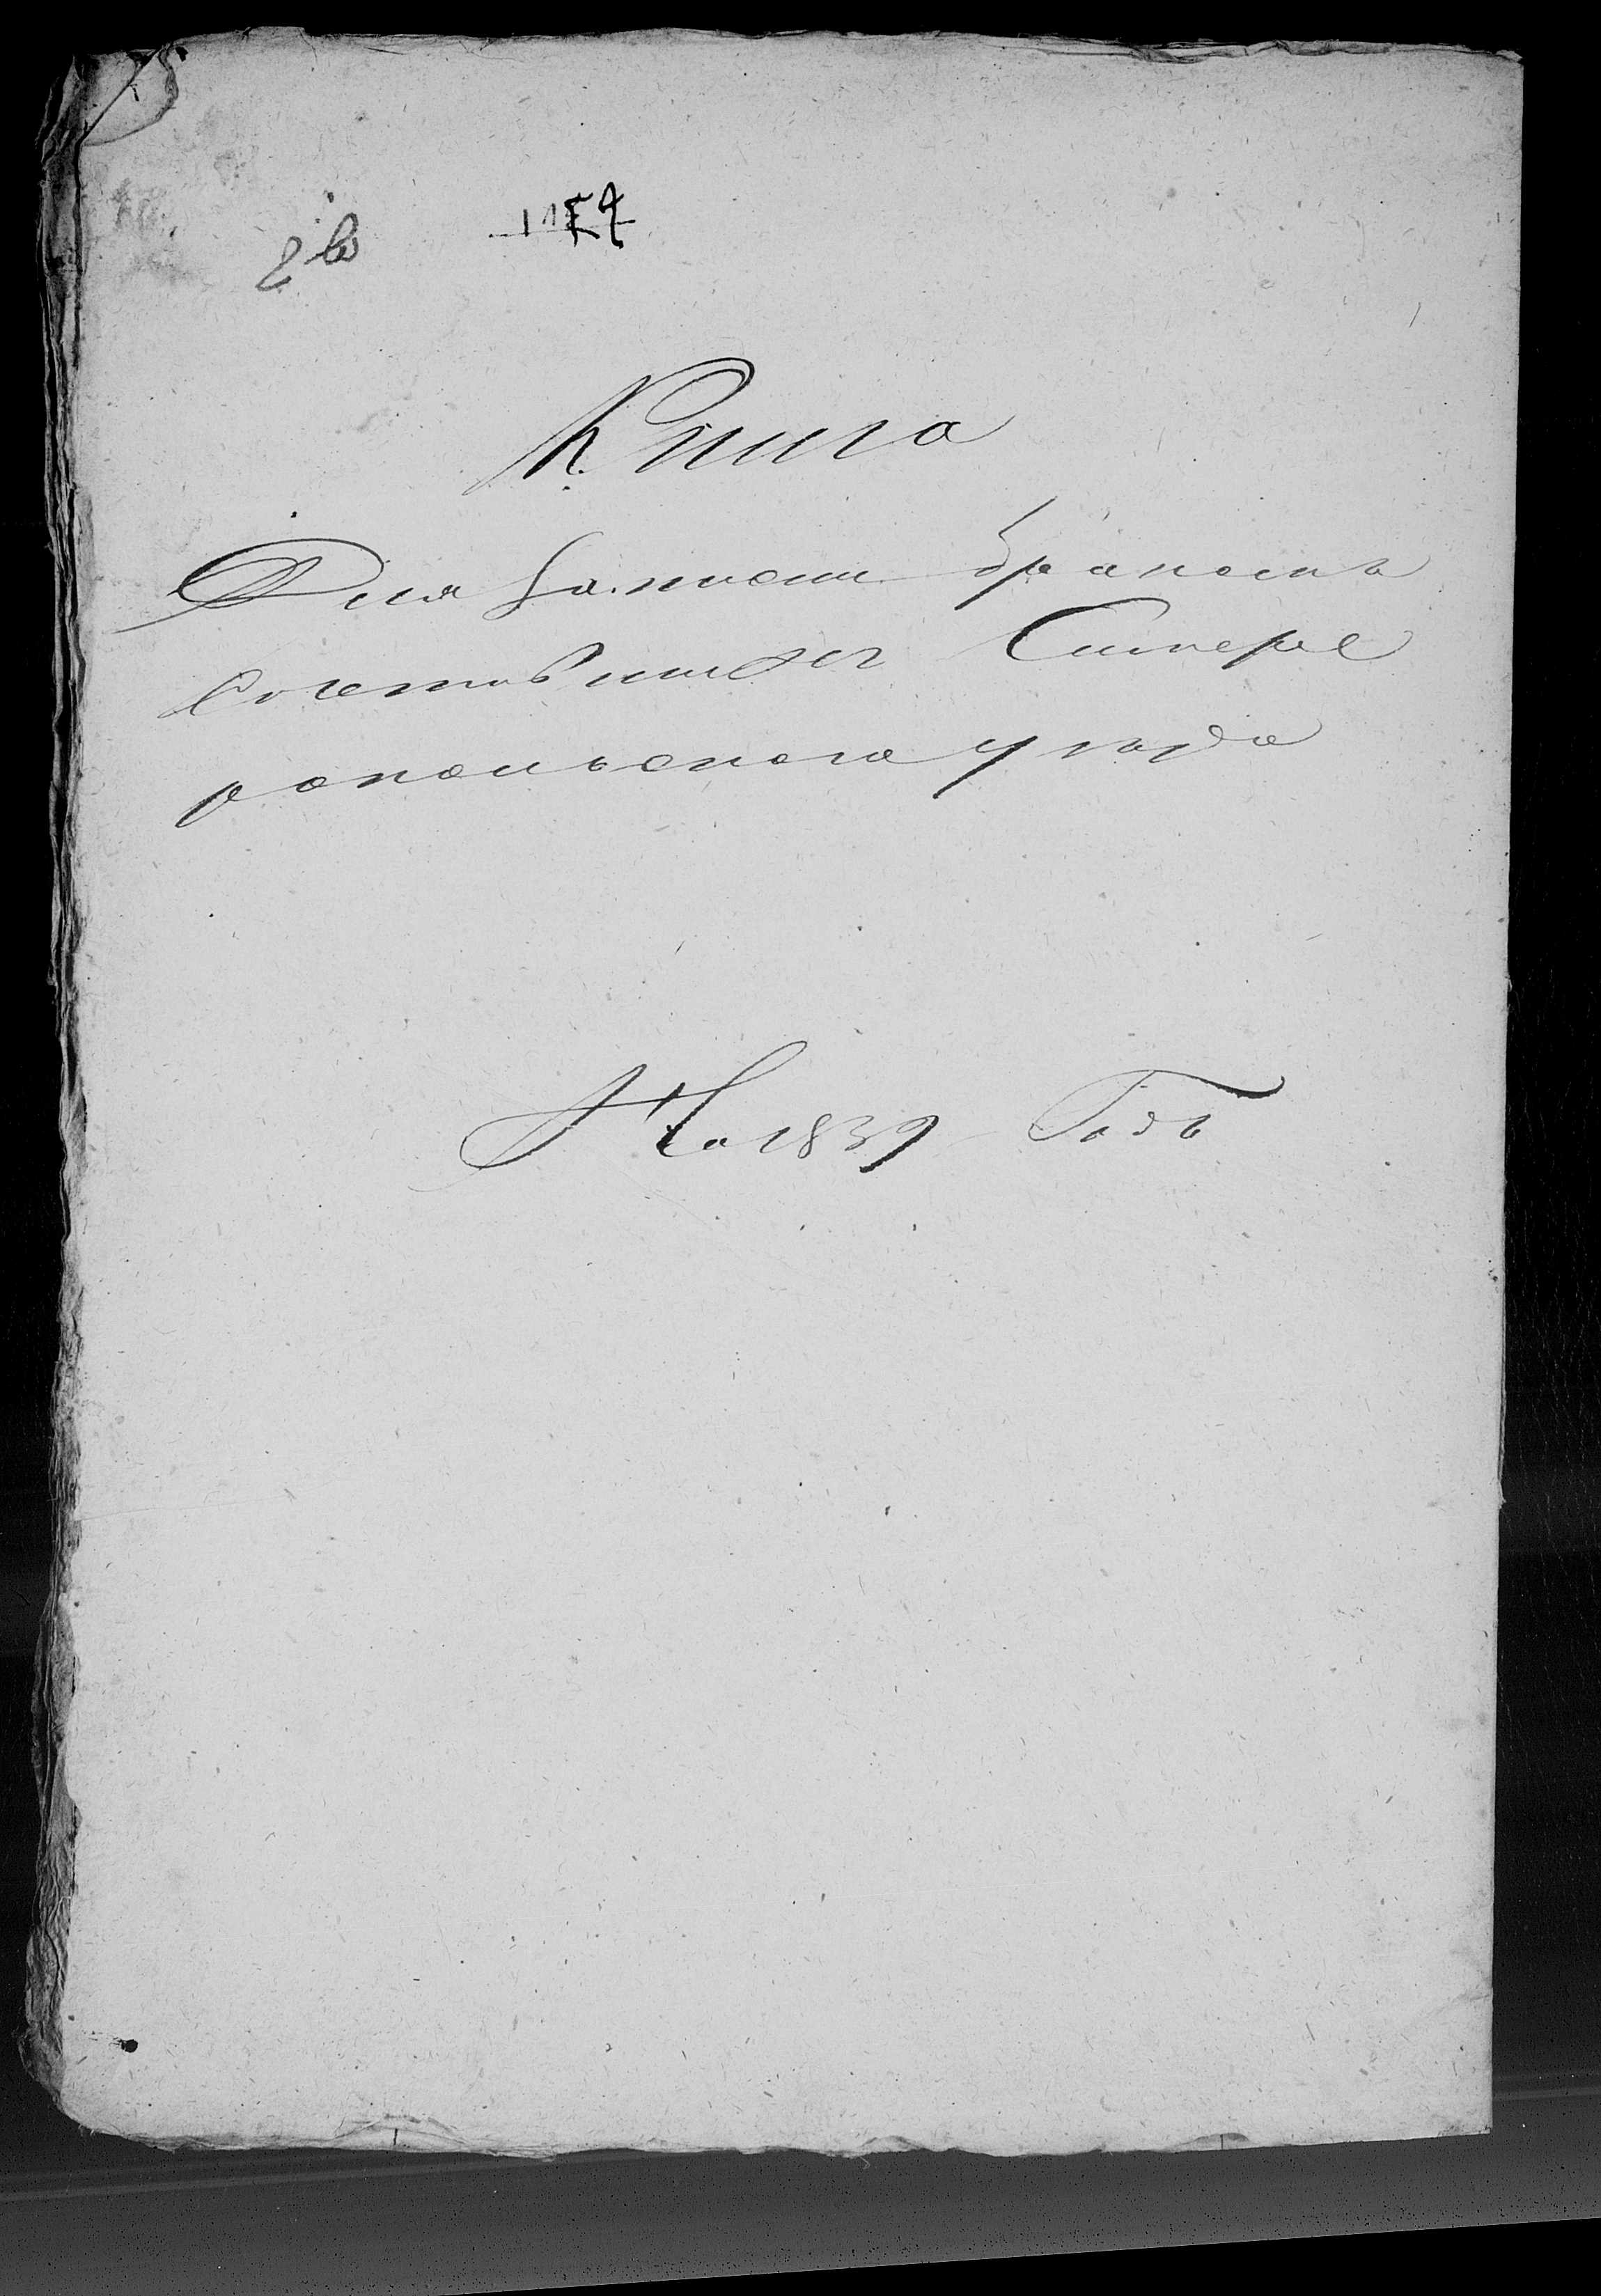 Книга
Для Записи браковъ
Сочетавшихся Симфе
ропольскаго уезда
На 1839 Годъ